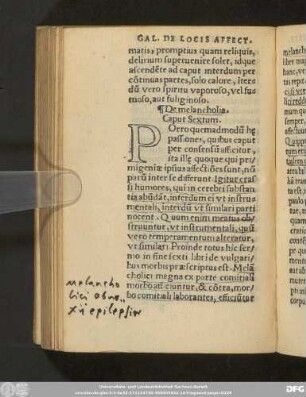 GAL. DE LOCIS AFFECT.
matis: promptius quam reliquis,
delirium superuenire solet, idque
ascendẽte ad caput interdum per
cõtinuas partes, solo calore, itera
dũ vero spiritu vaporoso, vel fu
moso, aut fuliginoso.
¶ De melancholia.
Caput Sextum.
POrro quemadmodũ hę
passiones, quibus caput
per consensũ afficitur,
ita illę quoque qui pri
migeniæ ipsius affectiões sunt, nõ
parũ inter se differunt. Igitur crassi
humores, qui in cerebri substan
tia abũdãt, interdum ei vt instru
mentali, interdũ vt similari parti
nocent. Quum enim meatus ob
struuntur, vt instrumentali, quũ
vero temperamentum alteratur,
vt similari. Proinde totus hic ser
mo in fine sexti libri de vulgari
bus morbis præscriptus est. Melã
cholici magna ex parte comitiali
morbo afficiuntur, & cõtra, mor
bo comitiali laborantes, efficiũtur
melancho
lici
epileptici
Universitäts- und Landesbibliothek Sachsen-Anhalt
DFG